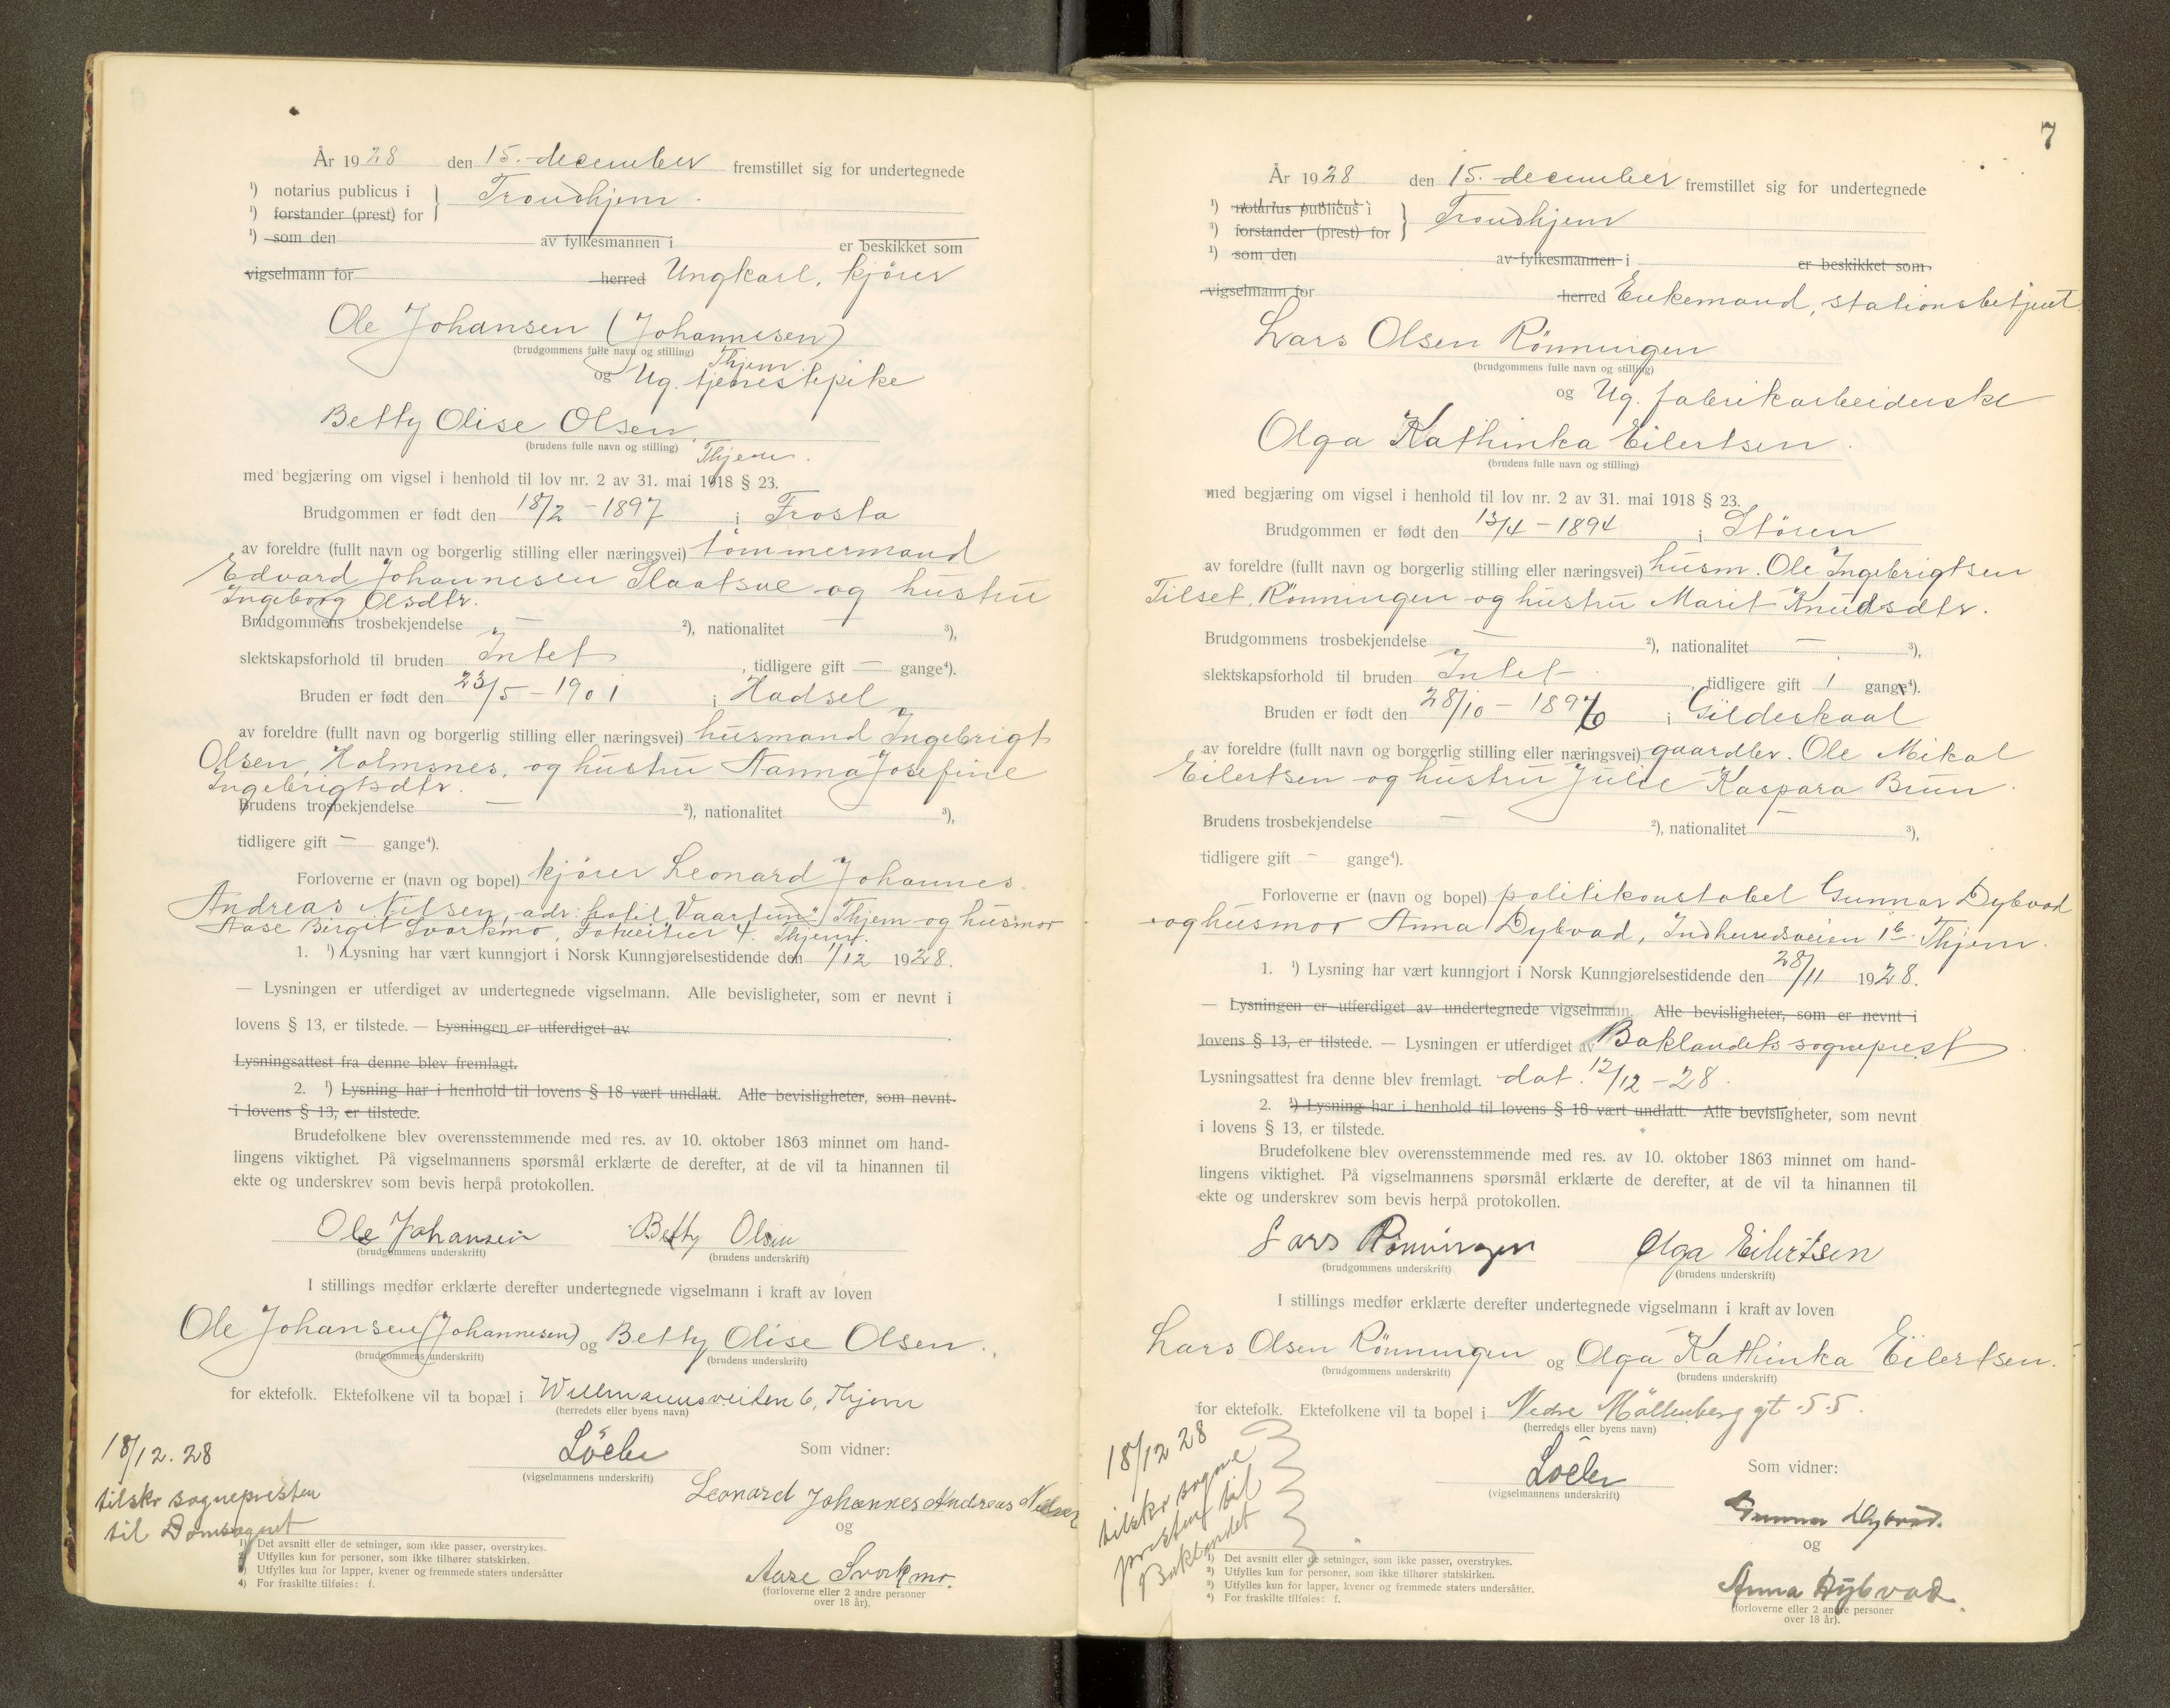 År 1928 den 15. december fremstillet sig for undertegnede
¹) notarius publicus i
¹) forstander (prest) for } Trondhjem.
¹) som den av fylkesmannen i er beskikket som
vigselmann for herred Ungkarl, kjører
Ole Johansen (Johannesen)
(brudgommens fulle navn og stilling) Thjem.
og Ug. tjenestepike
Betty Olise Olsen,
(brudens fulle navn og stilling) Thjem.
med begjæring om vigsel i henhold til lov nr. 2 av 31. mai 1918 § 23.
Brudgommen er født den 18/2 - 1897 i Frosta
av foreldre (fullt navn og borgerlig stilling eller næringsvei) tømmermand
Edvard Johannesen og hustru
Ingeborg Olsdtr.
Brudgommens trosbekjendelse — ²), nationalitet — ³),
slektskapsforhold til bruden Intet, tidligere gift — gange⁴).
Bruden er født den 23/5 - 1901 i Hadsel
av foreldre (fullt navn og borgerlig stilling eller næringsvei) husmand Ingebrigt
Olsen, Holmsnes, og hustru Nanna Josefine
Ingebrigtsdtr.
Brudens trosbekjendelse — ²), nationalitet ³),
tidligere gift — gange⁴).
Forloverne er (navn og bopel) kjører Leonard Johannes
Andreas Nilsen, adr: hotil "Vaartun" Thjem og husmor
Aase Birgit Svorkmo, 4. Thjem.
1. ¹) Lysning har vært kunngjort i Norsk Kunngjørelsestidende den 1/12 1928.
— Lysningen er utferdiget av undertegnede vigselmann. Alle bevisligheter, som er nevnt i
lovens § 13, er tilstede. — Lysningen er utferdiget av
Lysningsattest fra denne blev fremlagt.
2. ¹) Lysning har i henhold til lovens § 18 vært undlatt. Alle bevisligheter, som nevnt
i lovens § 13, er tilstede.
Brudefolkene blev overensstemmende med res. av 10. oktober 1863 minnet om hand-
lingens viktighet. På vigselmannens spørsmål erklærte de derefter, at de vil ta hinannen til
ekte og underskrev som bevis herpå protokollen.
Ole Johansen Betty Olsen
(brudgommens underskrift) (brudens underskrift)
I stillings medfør erklærte derefter undertegnede vigselmann i kraft av loven
Ole Johansen (Johannesen) og Betty Olise Olsen.
(brudgommens underskrift) (brudens underskrift)
for ektefolk. Ektefolkene vil ta bopæl i Willmannsveiten 6, Thjem
(herredets eller byens navn)
Löche Som vidner:
(vigselmannens underskrift)
Leonard Johannes Andreas Nilsen
og
Aase Svorkmo.
(forloverne eller 2 andre personer
over 18 år).
18/12. 28
tilskr sognepresten
til Domsognet
¹) Det avsnitt eller de setninger, som ikke passer, overstrykes.
²) Utfylles kun for personer, som ikke tilhører statskirken.
³) Utfylles kun for lapper, kvener og fremmede staters undersåtter
⁴) For fraskilte tilføies: f.
7
År 1928 den 15. december fremstillet sig for undertegnede
¹) notarius publicus i
¹) forstander (prest) for } Trondhjem
¹) som den av fylkesmannen i er beskikket som
vigselmann for herred Enkemand, stationsbetjent
Lars Olsen Rönningen
(brudgommens fulle navn og stilling)
og Ug. fabrikarbeiderske
Olga Kathinka Eilertsen.
(brudens fulle navn og stilling)
med begjæring om vigsel i henhold til lov nr. 2 av 31. mai 1918 § 23.
Brudgommen er født den 13/4 - 1894 i Stören
av foreldre (fullt navn og borgerlig stilling eller næringsvei) husm. Ole Ingebrigtsen
Tilset, Rönningen og hustru Marit Knudsdtr.
Brudgommens trosbekjendelse — ²), nationalitet — ³),
slektskapsforhold til bruden Intet, tidligere gift 1 gang⁴).
Bruden er født den 28/10 - 1896 i Gildeskaal
av foreldre (fullt navn og borgerlig stilling eller næringsvei) gaardbr. Ole Mikal
Eilertsen og hustru Julie Kaspara Brun.
Brudens trosbekjendelse — ²), nationalitet — ³),
tidligere gift — gange⁴).
Forloverne er (navn og bopel) politikonstabel Gunnar Dybvad
og husmor Anna Dybvad, Indherredsveien 1b Thjem.
1. ¹) Lysning har vært kunngjort i Norsk Kunngjørelsestidende den 28/11 1928.
— Lysningen er utferdiget av undertegnede vigselmann. Alle bevisligheter, som er nevnt i
lovens § 13, er tilstede. — Lysningen er utferdiget av Baklandets sogneprest
Lysningsattest fra denne blev fremlagt. dat. 12/12 - 28.
2. ¹) Lysning har i henhold til lovens § 18 vært undlatt. Alle bevisligheter, som nevnt
i lovens § 13, er tilstede.
Brudefolkene blev overensstemmende med res. av 10. oktober 1863 minnet om hand-
lingens viktighet. På vigselmannens spørsmål erklærte de derefter, at de vil ta hinannen til
ekte og underskrev som bevis herpå protokollen.
Lars Rönningen Olga Eilertsen
(brudgommens underskrift) (brudens underskrift)
I stillings medfør erklærte derefter undertegnede vigselmann i kraft av loven
Lars Olsen Rönningen og Olga Kathinka Eilertsen.
(brudgommens underskrift) (brudens underskrift)
for ektefolk. Ektefolkene vil ta bopel i Nedre Möllenberg gt. 55.
(herredets eller byens navn)
Löche Som vidner:
(vigselmannens underskrift)
Gunnar Dybvad.
og
Anna Dybvad.
(forloverne eller 2 andre personer
over 18 år).
18/12 28
tilskr sogne
presten til
Baklandet
¹) Det avsnitt eller de setninger, som ikke passer, overstrykes.
²) Utfylles kun for personer, som ikke tilhører statskirken.
³) Utfylles kun for lapper, kvener og fremmede staters undersåtter.
⁴) For fraskilte tilføies: f.